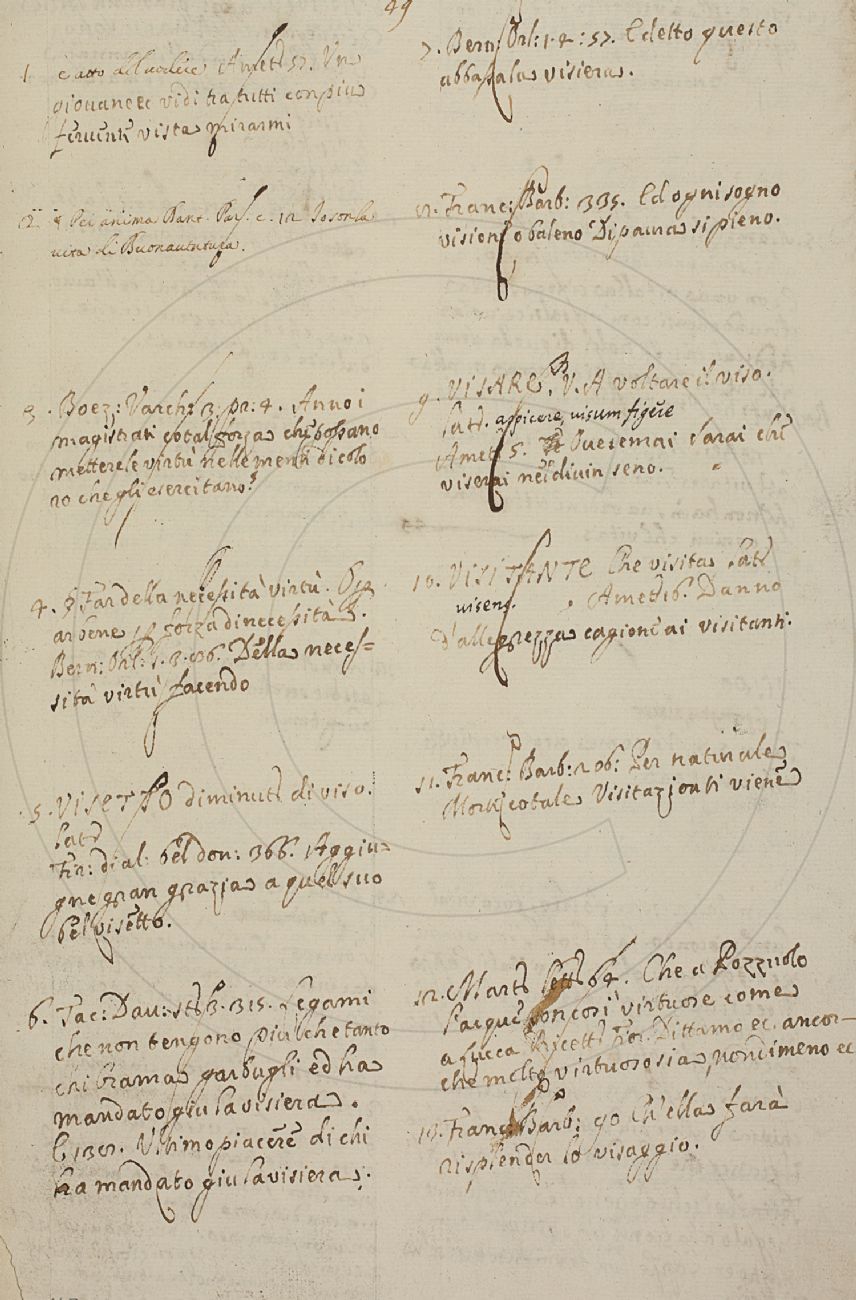 49
1. è atto del vedere Amet. 57. Un
giovane ec vidi tra tutti con piu
fervente vista mirarmi
2. Per anima Dant. Par. c. 12 Io son la
vita di Buonaventura.
3. Boez: Varch: 3. pr: 4. Anno i
magistrati cotal forza che possano
mettere le virtù nelle menti di colo
ro che gli esercitano?
4. § Far della necessità virtù. Op
ar bene p forza di necessità.
Bern: Orl: 1. 3. Della neces=
sità virtù facendo
5. VISETTO diminut. di viso.
lat.
Fir: dial: bel don: 366. Aggiu=
gne gran grazia a quel suo
bel visetto.
6. Tac: Dav: st. 3. 315. Legami
che non tengono piu che tanto
chi brama garbugli ed ha
mandato giu la visiera.
Ultimo piacere di chi
ha mandato giu la visiera.
7. Bern: Orl: 1. 4: 57. E detto questo
abbassala visiera.
Franc: Barb: 335. Ed ogni sogno
visione o baleno Di paura si pieno.
9. VISARE. V. A voltare il viso.
lat. aspicere, visum figere
Amet. 5. Tu bue ec mai sarai che
viserai nel divin seno.
10. VISITANTE Che visita lat.
visens. Amet. 16. Danno
d'allegrezza cagione ai visitanti.
11. Franc: Barb: 206: Per naturale
Morte cotale Visitazioni viene
12. Matt. lett. 64. Che a Pozzuolo
l'acque son così virtuose come
a Lucca Ricett. Fior. Dittamo ec. ancor-
che molto virtuoso sia, nondimeno ec
13. Franc: Barb: 90 Ch'ella farà
risplender lo visaggio.